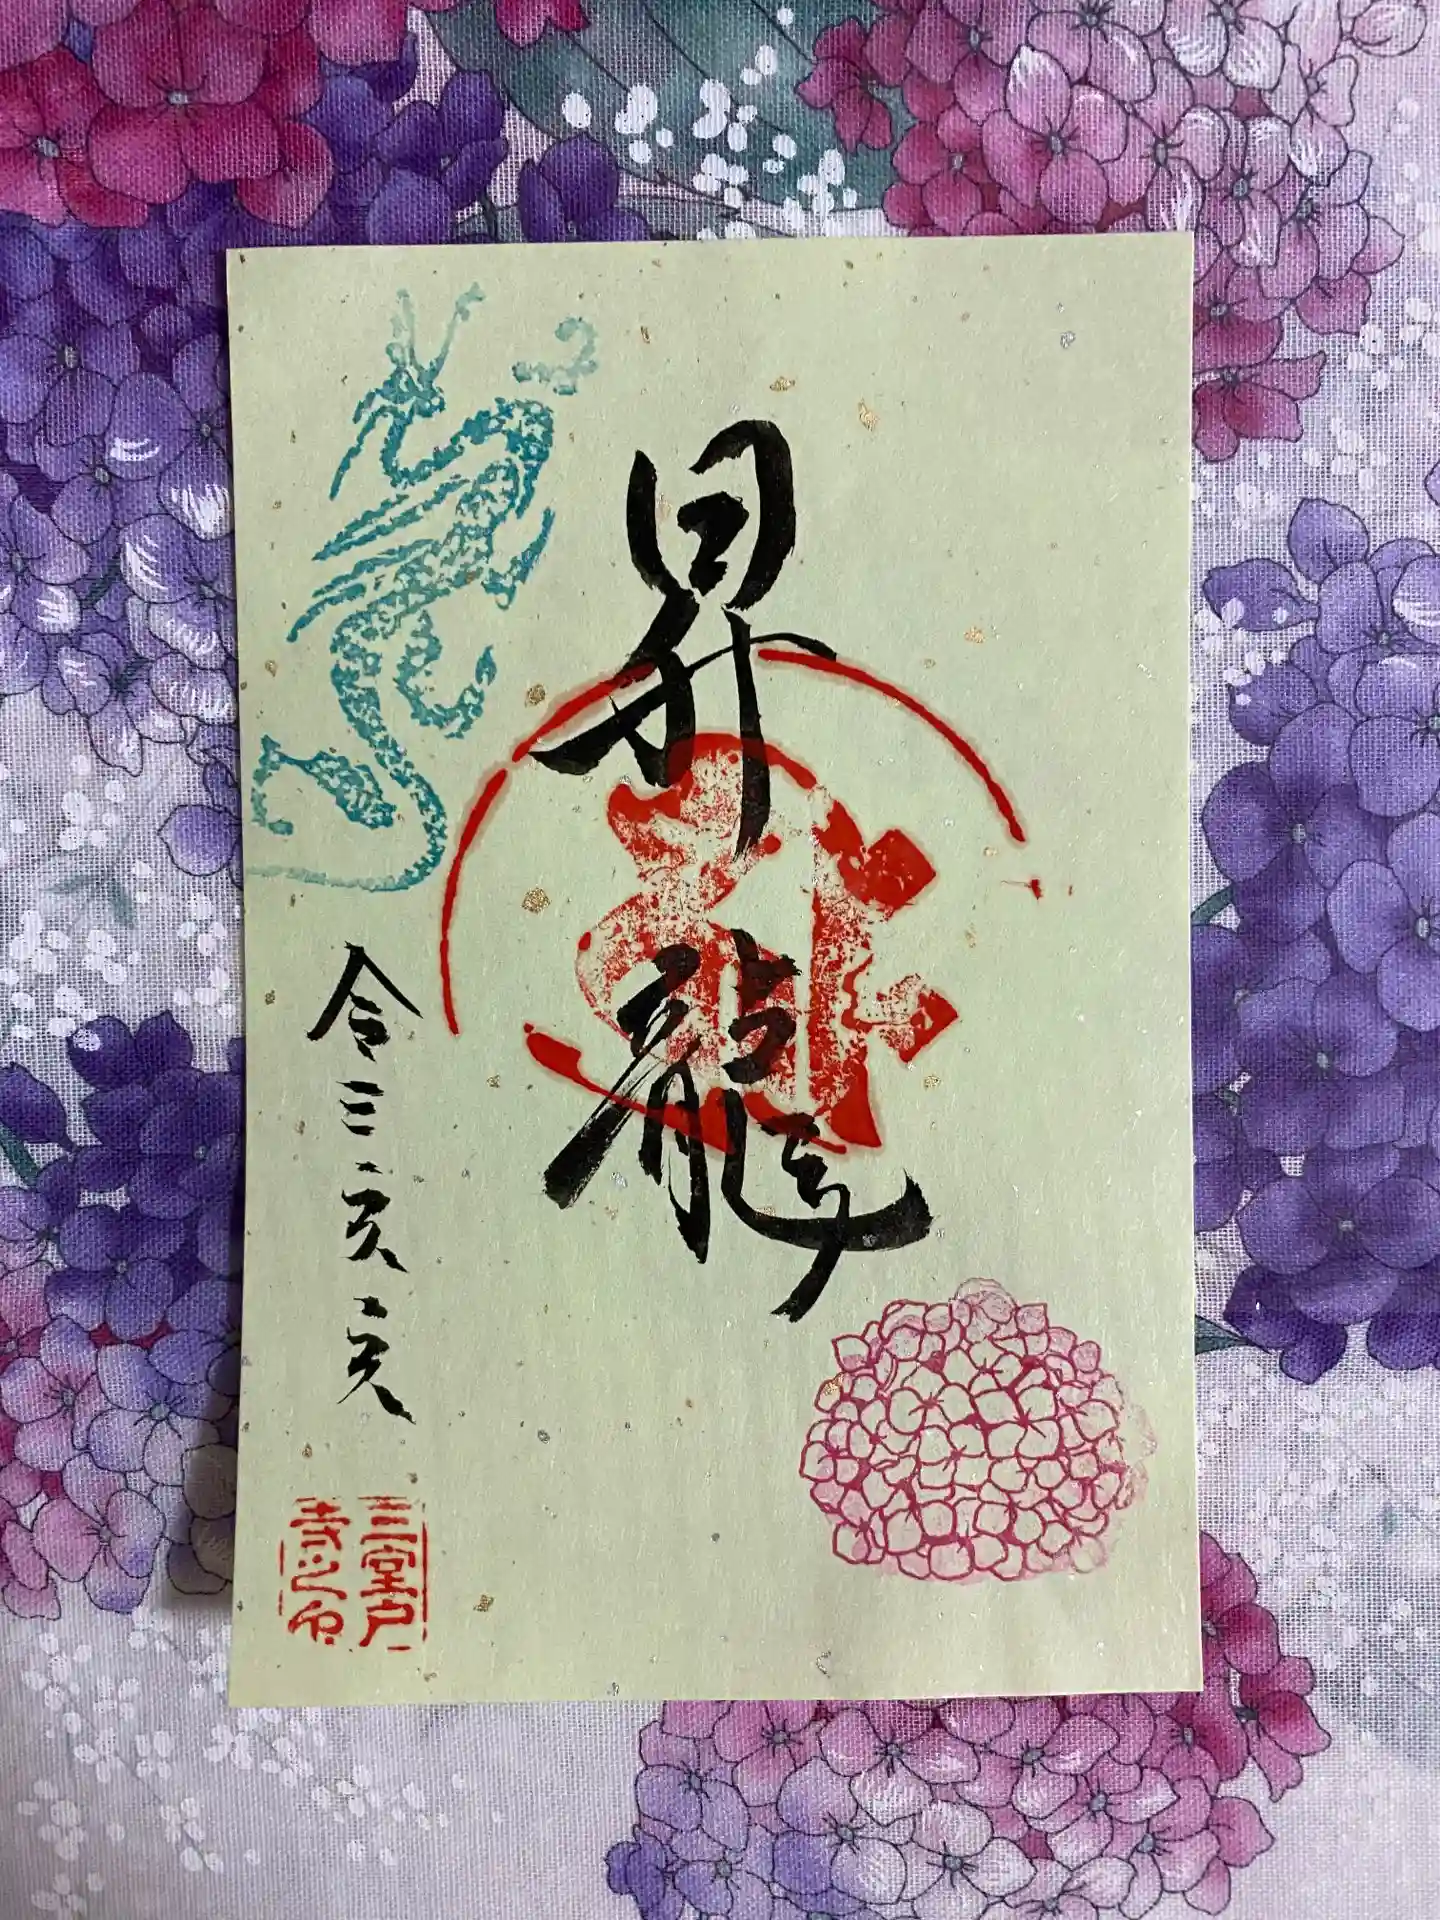 昇龍
令三六六
三室戸
寺之印